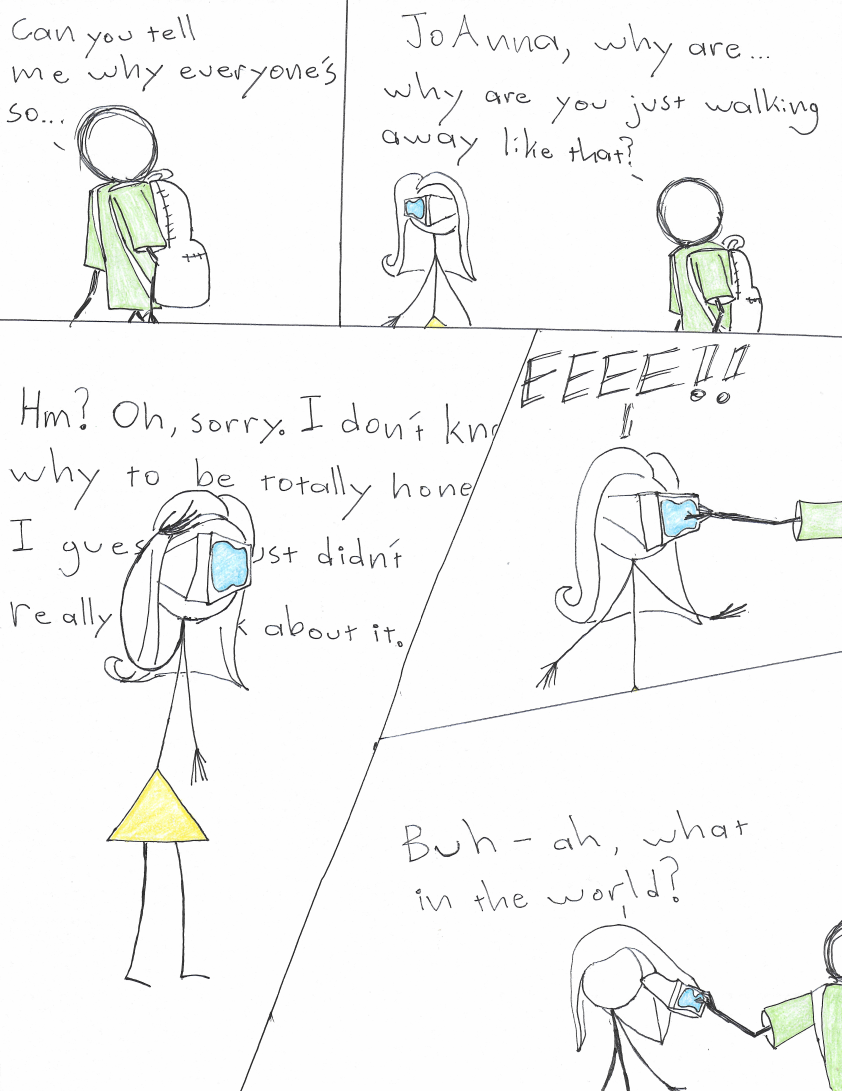 Can you tell
me why everyone's
so...
JoAnna, why are...
why are you just walking
away like that?
Hm? Oh, sorry. I don't
why to be totally
I ust didn't
really about it.
EEEE!!
Buh - ah, what
in the world?